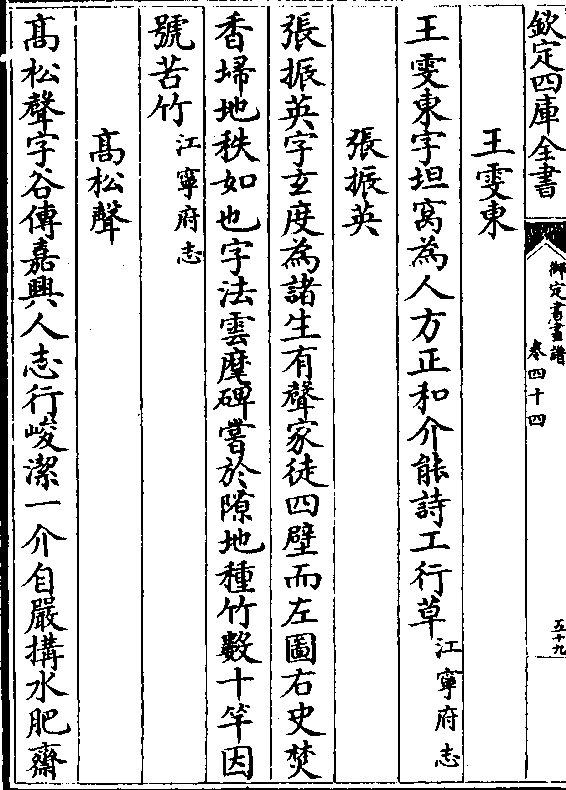 欽定四庫全書
御定書畫譜
卷四十四
五十九
王雯東
王雯東字坦窩為人方正和介能詩工行草江寧府志
張振英
張振英字玄度為諸生有聲家徒四壁而左圖右史焚
香埽地秩如也字法雲麾碑嘗於隙地種竹數十竿因
號苦竹江寧府志
髙松聲
髙松聲字谷傳嘉興人志行峻潔一介自嚴搆水肥齋